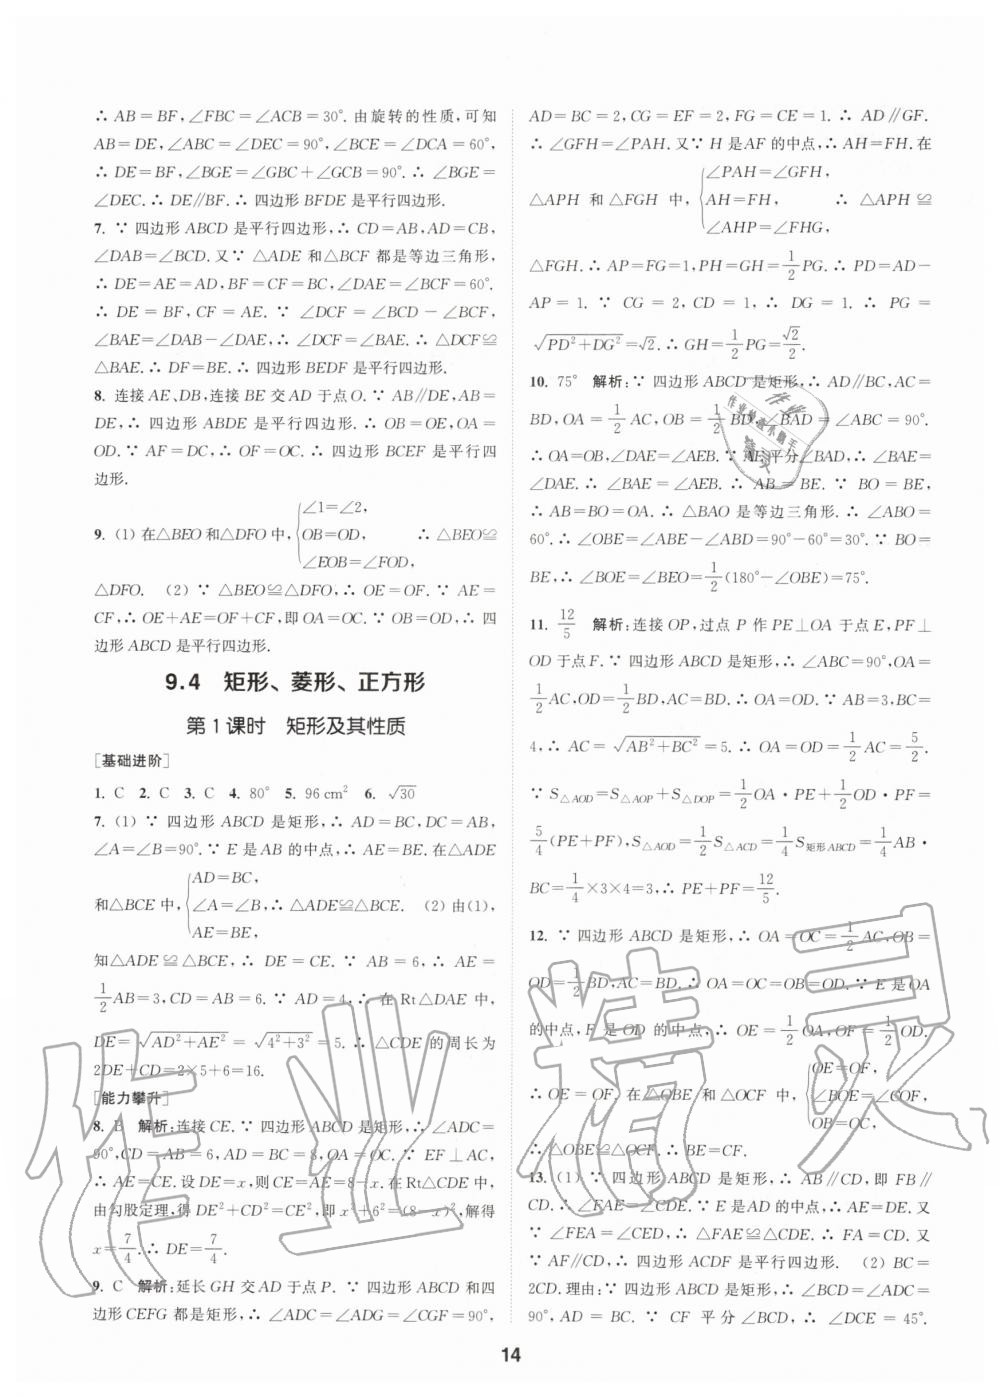 ∴ AB=BF,∠FBC=∠ACB=30°. 由旋转的性质,可知
AB=DE,∠ABC=∠DEC=90°,∠BCE=∠DCA=60°.
∴ DE=BF,∠BGE=∠GBC+∠GCB=90°. ∴ ∠BGE=
∠DEC. ∴ DE∥BF. ∴ 四边形 BFDE 是平行四边形.
7. ∵ 四边形 ABCD 是平行四边形,∴ CD=AB,AD=CB,
∠DAB=∠BCD. 又∵ △ADE 和△BCF 都是等边三角形,
∴ DE=AE=AD,BF=CF=BC,∠DAE=∠BCF=60°.
∴ DE=BF,CF=AE. ∵ ∠DCF=∠BCD-∠BCF,
∠BAE=∠DAB-∠DAE,∴ ∠DCF=∠BAE. ∴ △DCF≌
△BAE. ∴ DF=BE. ∴ 四边形 BEDF 是平行四边形.
8. 连接 AE、DB,连接 BE 交 AD 于点 O. ∵ AB∥DE,AB=
DE,∴ 四边形 ABDE 是平行四边形. ∴ OB=OE,OA=
OD. ∵ AF=DC,∴ OF=OC. ∴ 四边形 BCEF 是平行四
边形.
9. (1) 在△BEO 和△DFO 中,{∠1=∠2, OB=OD, ∠EOB=∠FOD, ∴ △BEO≌
△DFO. (2) ∵ △BEO≌△DFO,∴ OE=OF. ∵ AE=
CF,∴ OE+AE=OF+CF,即 OA=OC. ∵ OB=OD,∴ 四
边形 ABCD 是平行四边形.
9.4 矩形、菱形、正方形
第 1 课时 矩形及其性质
[基础进阶]
1. C 2. C 3. C 4. 80° 5. 96 cm² 6. √30
7. (1) ∵ 四边形 ABCD 是矩形,∴ AD=BC,DC=AB,
∠A=∠B=90°. ∵ E 是 AB 的中点,∴ AE=BE. 在△ADE
和△BCE 中,{AD=BC, ∠A=∠B, AE=BE, ∴ △ADE≌△BCE. (2) 由(1),
知△ADE ≌ △BCE,∴ DE = CE. ∵ AB = 6,∴ AE =
1/2 AB=3,CD=AB=6. ∵ AD=4,∴ 在 Rt△DAE 中,
DE=√(AD²+AE²) = √(4²+3²) = 5. ∴ △CDE 的周长为
2DE+CD=2×5+6=16.
[能力攀升]
8. B 解析:连接 CE. ∵ 四边形 ABCD 是矩形,∴ ∠ADC=
90°,CD=AB=6,AD=BC=8,OA=OC. ∵ EF⊥AC,
∴ AE=CE. 设 DE=x,则 CE=AE=8-x. 在 Rt△CDE 中,
由勾股定理,得 DE²+CD²=CE²,即 x²+6²=(8-x)²,解得
x=7/4. ∴ DE=7/4.
9. C 解析:延长 GH 交 AD 于点 P. ∵ 四边形 ABCD 和四
边形 CEFG 都是矩形,∴ ∠ADC=∠ADG=∠CGF=90°,
AD=BC=2,CG=EF=2,FG=CE=1. ∴ AD∥GF.
∴ ∠GFH=∠PAH. 又∵ H 是 AF 的中点,∴ AH=FH. 在
△APH 和 △FGH 中,{∠PAH=∠GFH, AH=FH, ∠AHP=∠FHG, ∴ △APH ≌
△FGH. ∴ AP=FG=1,PH=GH=1/2 PG. ∴ PD=AD-
AP=1. ∵ CG=2,CD=1,∴ DG=1. ∴ PG=
√(PD²+DG²)=√2. ∴ GH=1/2 PG=√2/2.
10. 75° 解析:∵ 四边形 ABCD 是矩形,∴ AD∥BC,AC=
BD,OA=1/2 AC,OB=1/2 BD,∠BAD=∠ABC=90°.
∴ OA=OB,∠DAE=∠AEB. ∵ AE 平分∠BAD,∴ ∠BAE=
∠DAE. ∴ ∠BAE=∠AEB. ∴ AB=BE. ∵ BO=BE,
∴ AB=BO=OA. ∴ △BAO 是等边三角形. ∴ ∠ABO=
60°. ∴ ∠OBE=∠ABE-∠ABD=90°-60°=30°. ∵ BO=
BE,∴ ∠BOE=∠BEO=1/2(180°-∠OBE)=75°.
11. 12/5 解析:连接 OP,过点 P 作 PE⊥OA 于点 E,PF⊥
OD 于点 F. ∵ 四边形 ABCD 是矩形,∴ ∠ABC=90°,OA=
1/2 AC,OD=1/2 BD,AC=BD. ∴ OA=OD. ∵ AB=3,BC=
4,∴ AC=√(AB²+BC²)=5. ∴ OA=OD=1/2 AC=5/2.
∵ S△AOD=S△AOP+S△DOP=1/2 OA·PE+1/2 OD·PF=
5/4(PE+PF),S△AOD=1/2 S△ACD=1/4 S矩形ABCD=1/4 AB·
BC=1/4×3×4=3,∴ PE+PF=12/5.
12. ∵ 四边形 ABCD 是矩形,∴ OA=OC=1/2 AC,OB=
OD=1/2 BD,AC=BD. ∴ OA=OC=OB=OD. ∵ E 是 OA
的中点,F 是 OD 的中点,∴ OE=1/2 OA,OF=1/2 OD.
∴ OE=OF. 在△OBE 和△OCF 中,{OE=OF, ∠BOE=∠COF, OB=OC,
∴ △OBE≌△OCF. ∴ BE=CF.
13. (1) ∵ 四边形 ABCD 是矩形,∴ AB∥CD,即 FB∥
CD. ∴ ∠FAE=∠CDE. ∵ E 是 AD 的中点,∴ AE=DE. 又
∵ ∠FEA=∠CED,∴ △FAE≌△CDE. ∴ FA=CD. 又
∵ AF∥CD,∴ 四边形 ACDF 是平行四边形. (2) BC=
2CD. 理由:∵ 四边形 ABCD 是矩形,∴ ∠BCD=∠ADC=
90°,AD=BC. ∵ CF 平分∠BCD,∴ ∠DCE=45°.
14
作业精灵